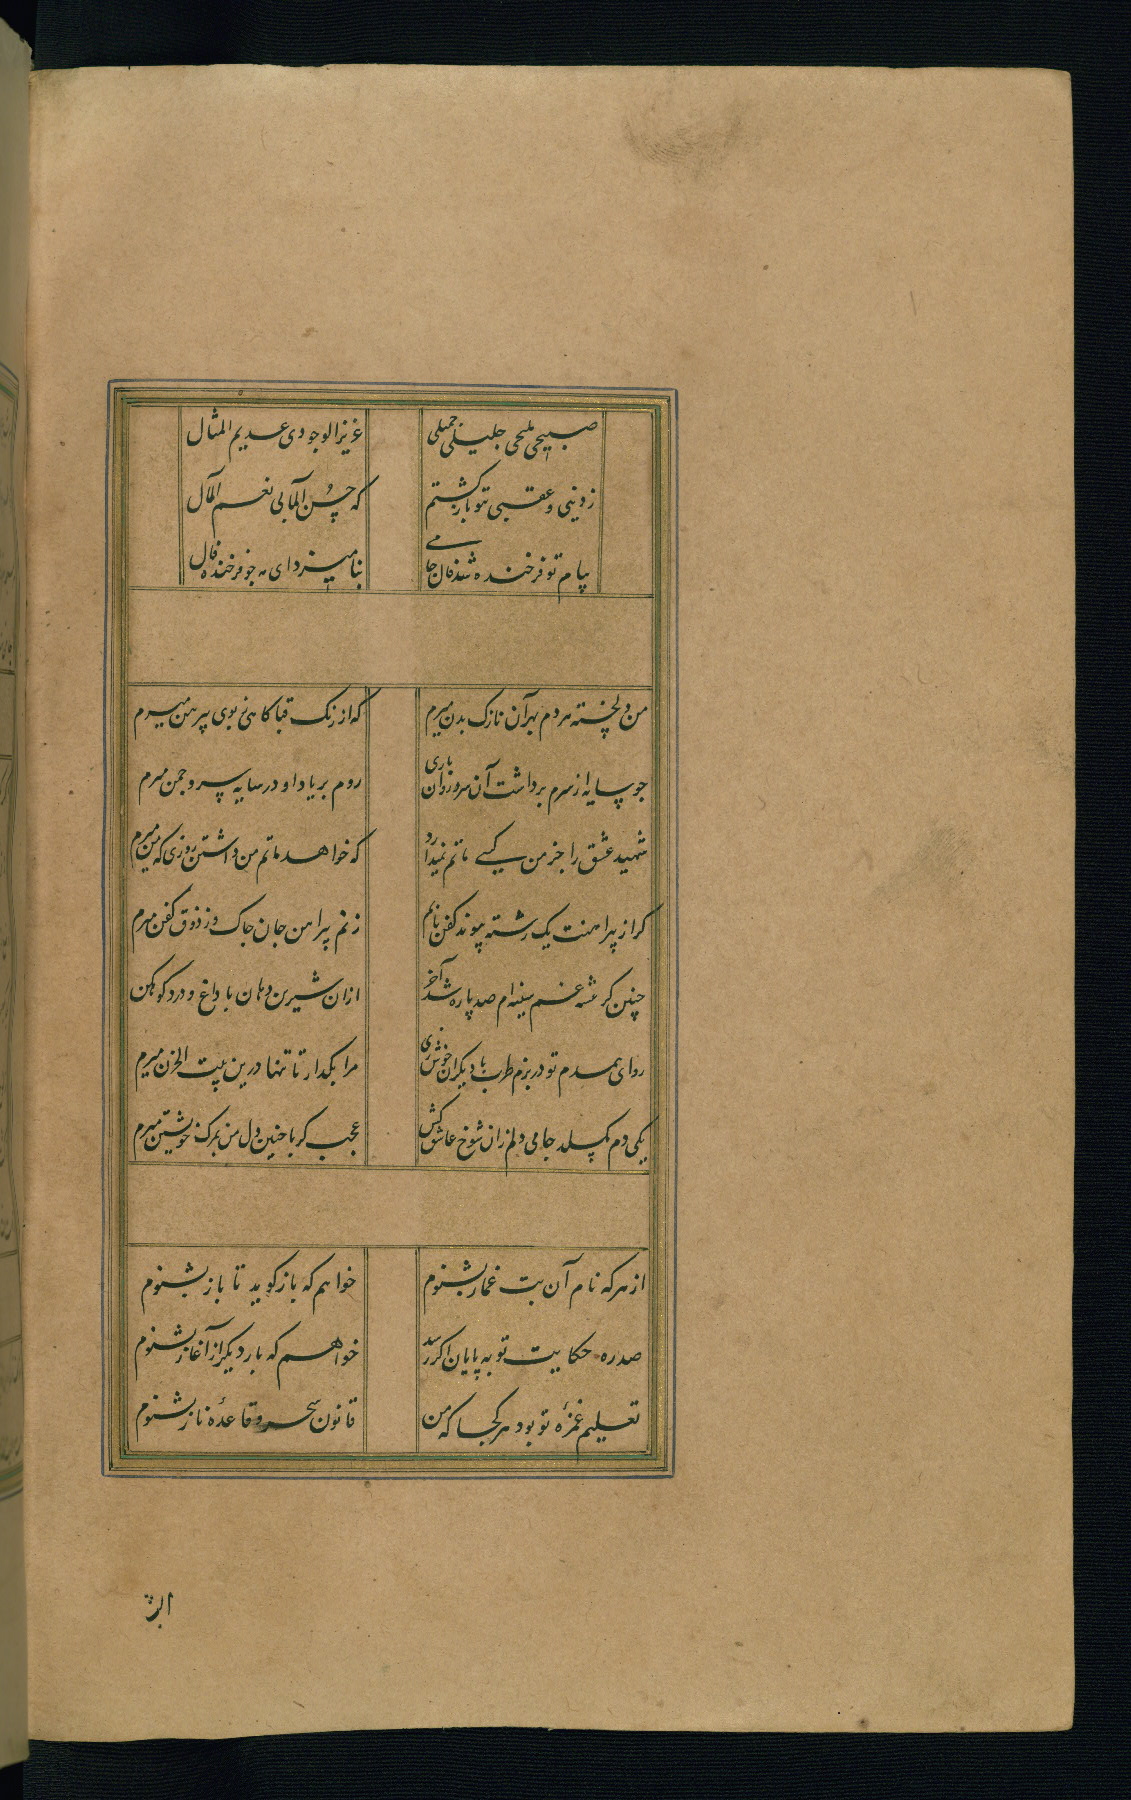 صبیحی ملیحی جلیلی جمیلی عزیز الوجودی عدیم المثال
ز دنیی و عقبی بتو بازگشتم که حسن المآبی نعم المآل
بنام تو فرخنده شد فال جامی بنامیزد ای مه خو فرخنده فال
من دلخسته مردم بهر آن نازک بدن میرم که از رنک قبا کاهی ز بوی پیرهن میرم
چو سایه از سرم برداشت آن سرو روان باری روم بر یاد او در سایه سرو چمن میرم
شهید عشق را جز من کسی ماتم نمیدارد که خواهد ماتم من داشتن روزی که من میرم
کر از پیراهنت یک رشته پیوند کفن یابم زنم پیراهن جان چاک وز ذوق کفن میرم
چنین کز تیشه غم سینه ام صد پاره شد آخر ازان شیرین دهان با داغ و درد کوهکن
رو ای همدم تو در بزم طرب با دیکران خوش زی مرا بگذار تا تنها درین بیت الحزن میرم
یکی دم نکسلد جامی دلم زان شوخ عاشق کش عجب کر با چنین دل من بمرک خویشتن میرم
از هر که نام آن بت غماز بشنوم خواهم که باز کوید تا باز بشنوم
صد ره حکایت تو به پایان اکر رسد خواهم که بار دیکر از آغاز بشنوم
تعلیم غمزه تو بود هر کجا که من قانون سحر و قاعده ناز بشنوم